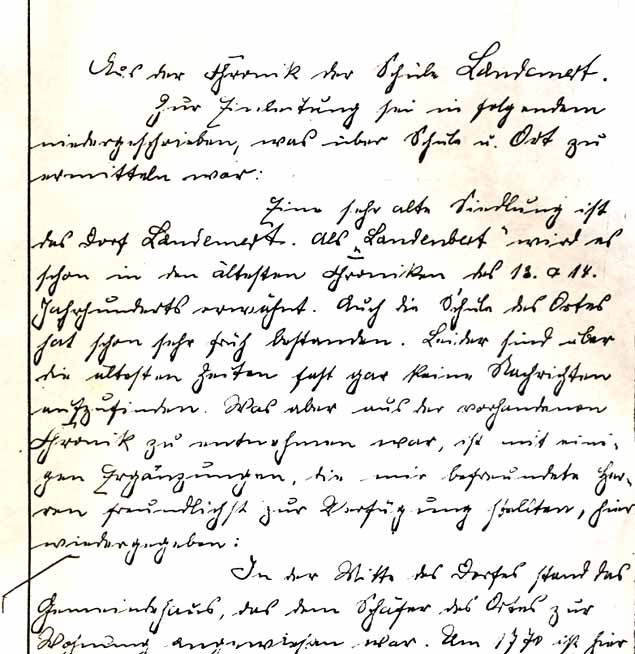 Aus der Chronik der Schule Landemert.
Zur Einleitung sei in folgendem
niedergeschrieben, was über Schule u. Ort zu
ermitteln war:
Eine sehr alte Siedlung ist
das Dorf Landemert. Als „Landenbert" wird es
schon in den ältesten Chroniken des 13. & 14.
Jahrhunderts erwähnt. Auch die Schule des Ortes
hat schon sehr früh bestanden. Leider sind über
die ältesten Zeiten fast gar keine Nachrichten
aufzufinden. Was aber aus der vorhandenen
Chronik zu entnehmen war, ist mit eini-
gen Ergänzungen, die mir befreundete Her-
ren freundlichst zur Verfügung stellten, hier
wiedergegeben:
In der Mitte des Dorfes stand das
Gemeindehaus, das dem Schäfer des Ortes zur
Wohnung angewiesen war. Um 1770 ist hier